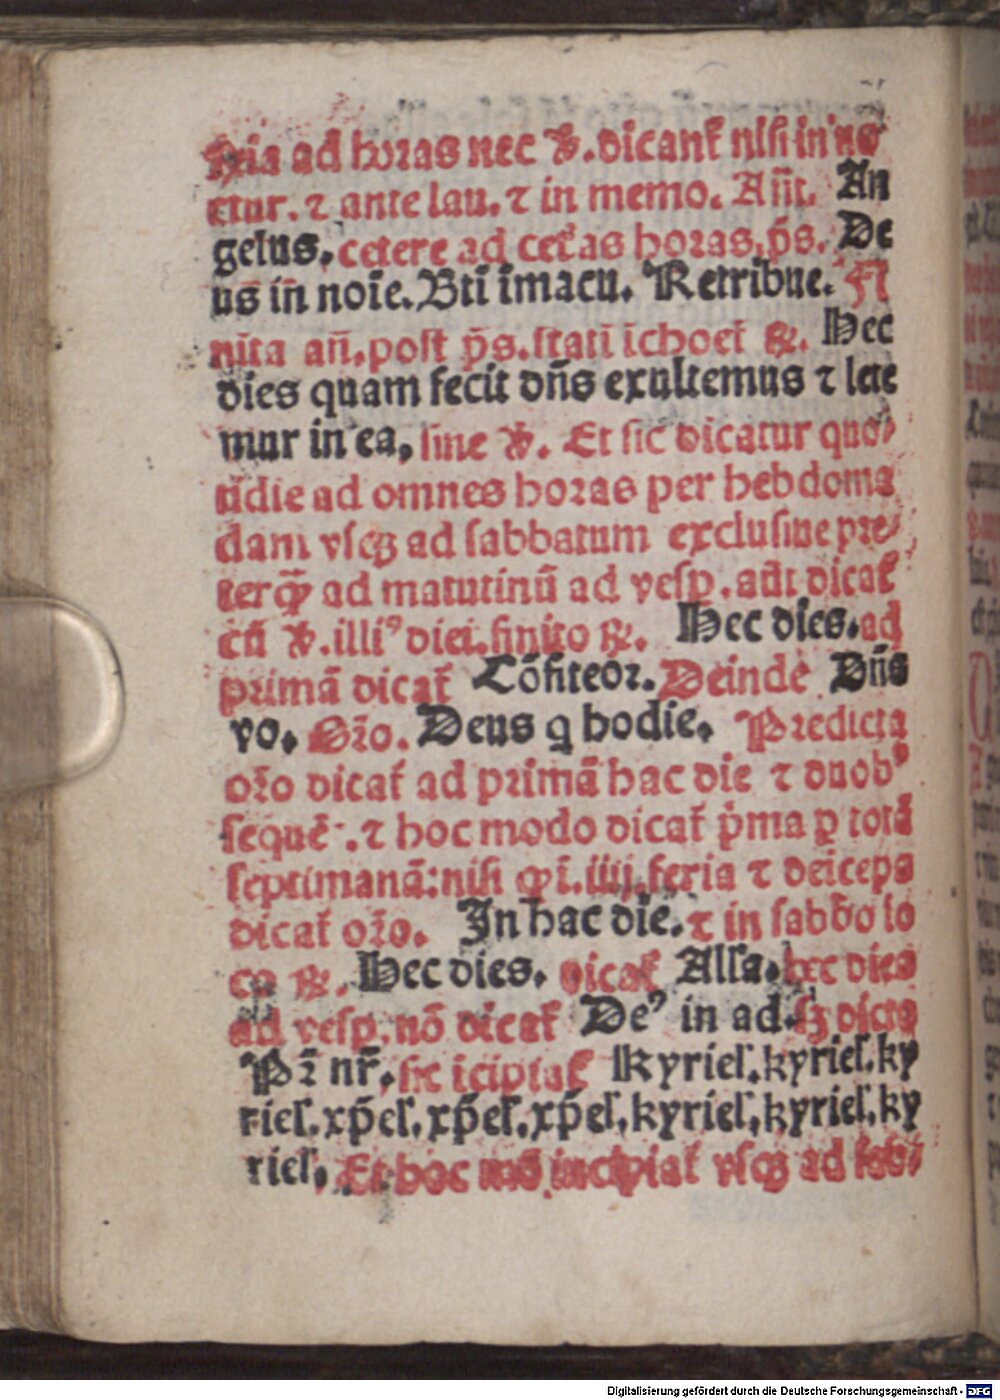 ad horas nec ℣. dicant᷑ nisi in no
ctur. ⁊ ante lau. ⁊ in memo. Añt. An
gelus. cetere ad cet᷑as horas. p̄s. De
us iñ noīe. Bt̄i īmacu. Retribue. Fi
nita añ. post p̄s. statī īchoet᷑ ℟. Hec
dies quam fecit dñs exultemus ⁊ lete
mur in ea, sine ℣. Et sic dicatur quo/
tidie ad omnes horas per hebdoma
dam vsqꝫ ad sabbatum exclusiue pre/
terqꝫ ad matutinū ad vesp. aūt dicat᷑
cū ℣. illi⁹ diei. finito ℟. Hec dies. ad
primā dicat᷑ Cōfiteor. Deinde Dñs
vo. Oro. Deus q hodie. Predicta
oro dicat᷑ ad primā hac die ⁊ duob⁹
sequē. ⁊ hoc modo dicat᷑ p̄ma ꝑ totā
septimanā: nisi qꝫ ī. iiij. feria ⁊ deīceps
dicat᷑ oro. In hac die. ⁊ in sabb̄o lo
co ℟. Hec dies. dicat᷑ Alla. hec dies
ad vesp. nō dicat᷑ De⁹ in ad. sꝫ dicto
Pr̄ nr̄. sic īcipiat᷑ Kyriel. kyriel. ky
riel. xp̄el. xp̄el. xp̄el. kyriel. kyriel. ky
riel. Et hoc mō incipiat᷑ vsqꝫ ad
Digitalisierung gefördert durch die Deutsche Forschungsgemeinschaft - DFG